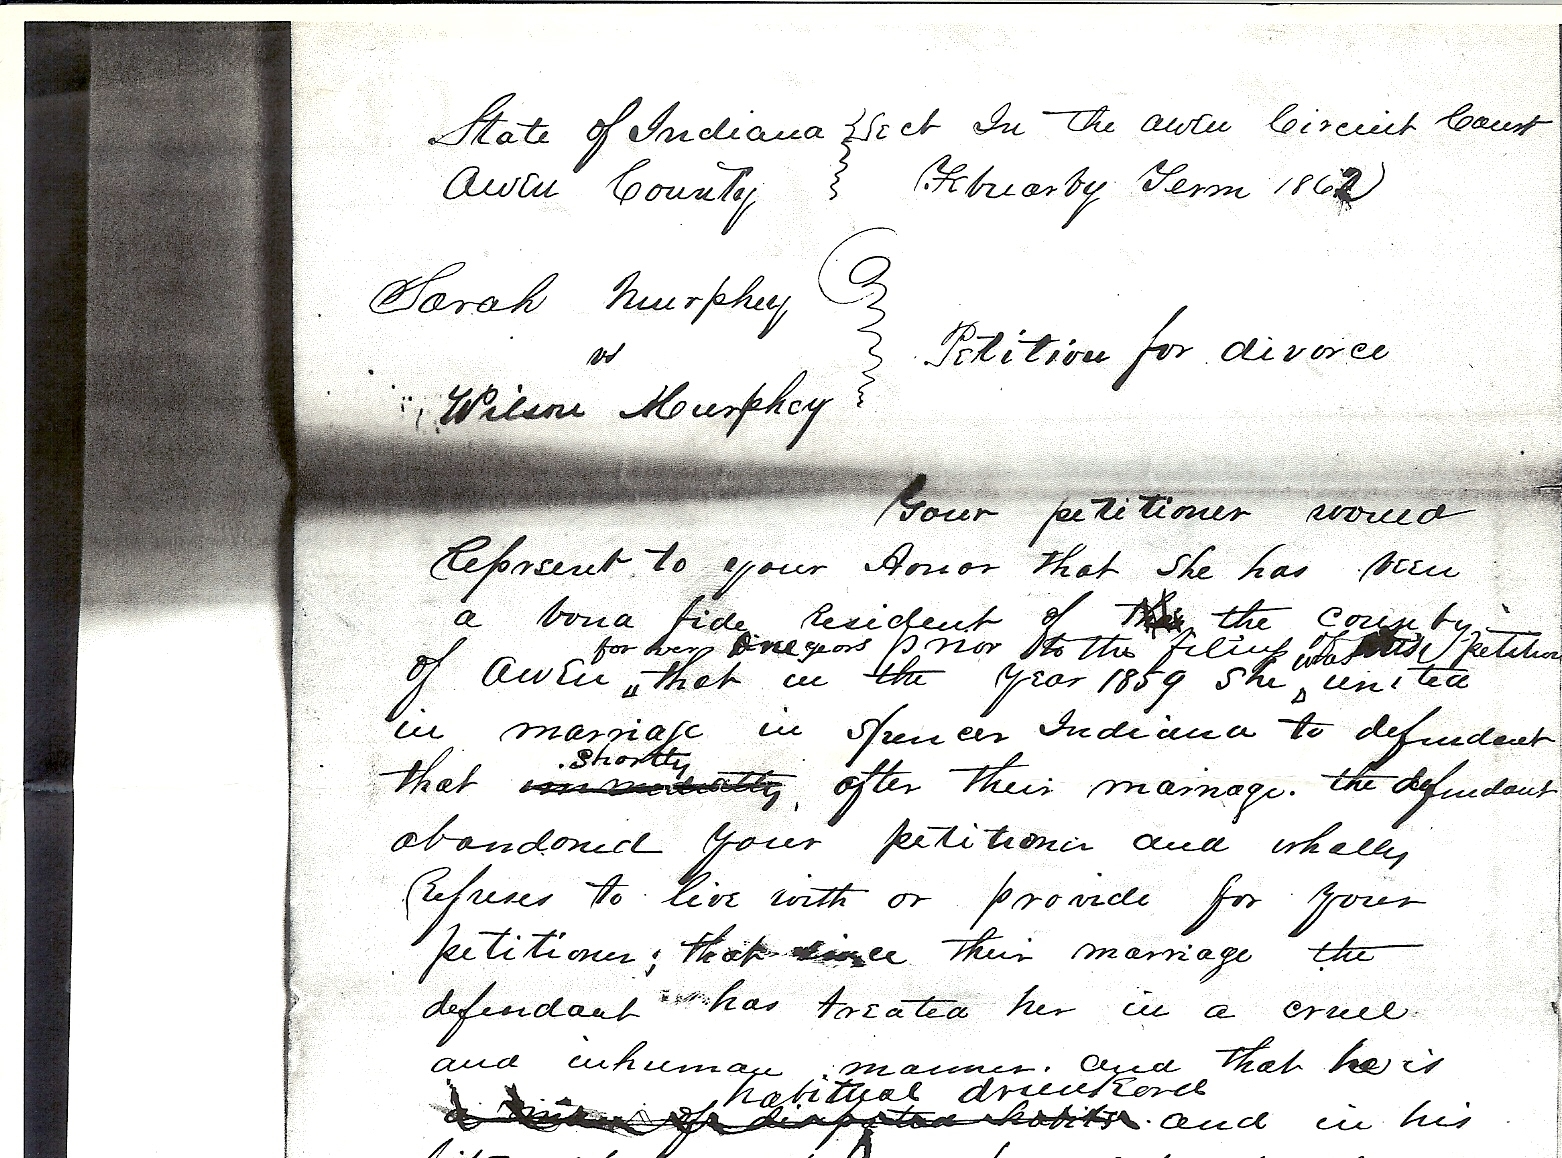 State of Indiana } Sct In the Owen Circuit Court
Owen County } Febuarby Term 1862
Sarah Murphey
vs
Petition for divorce
Wilson Murphey
Your petitioner would
Reprsent to your Honor that she has been
a bona fide Resident of the the county
for over one years prior to the filing of this petition
of Owen that in the year 1859 she was united
in marriage in Spencer Indiana to defendant
shortly
that immediatly, after their mairiage. the defendant
abandoned your petitioner and wholly
Refuses to live with or provide for your
petitioner; that since their marriage the
defendant has treated her in a cruel
and inhuman manner. and that he is
habitual drunkord
a man of disipated habits and in his